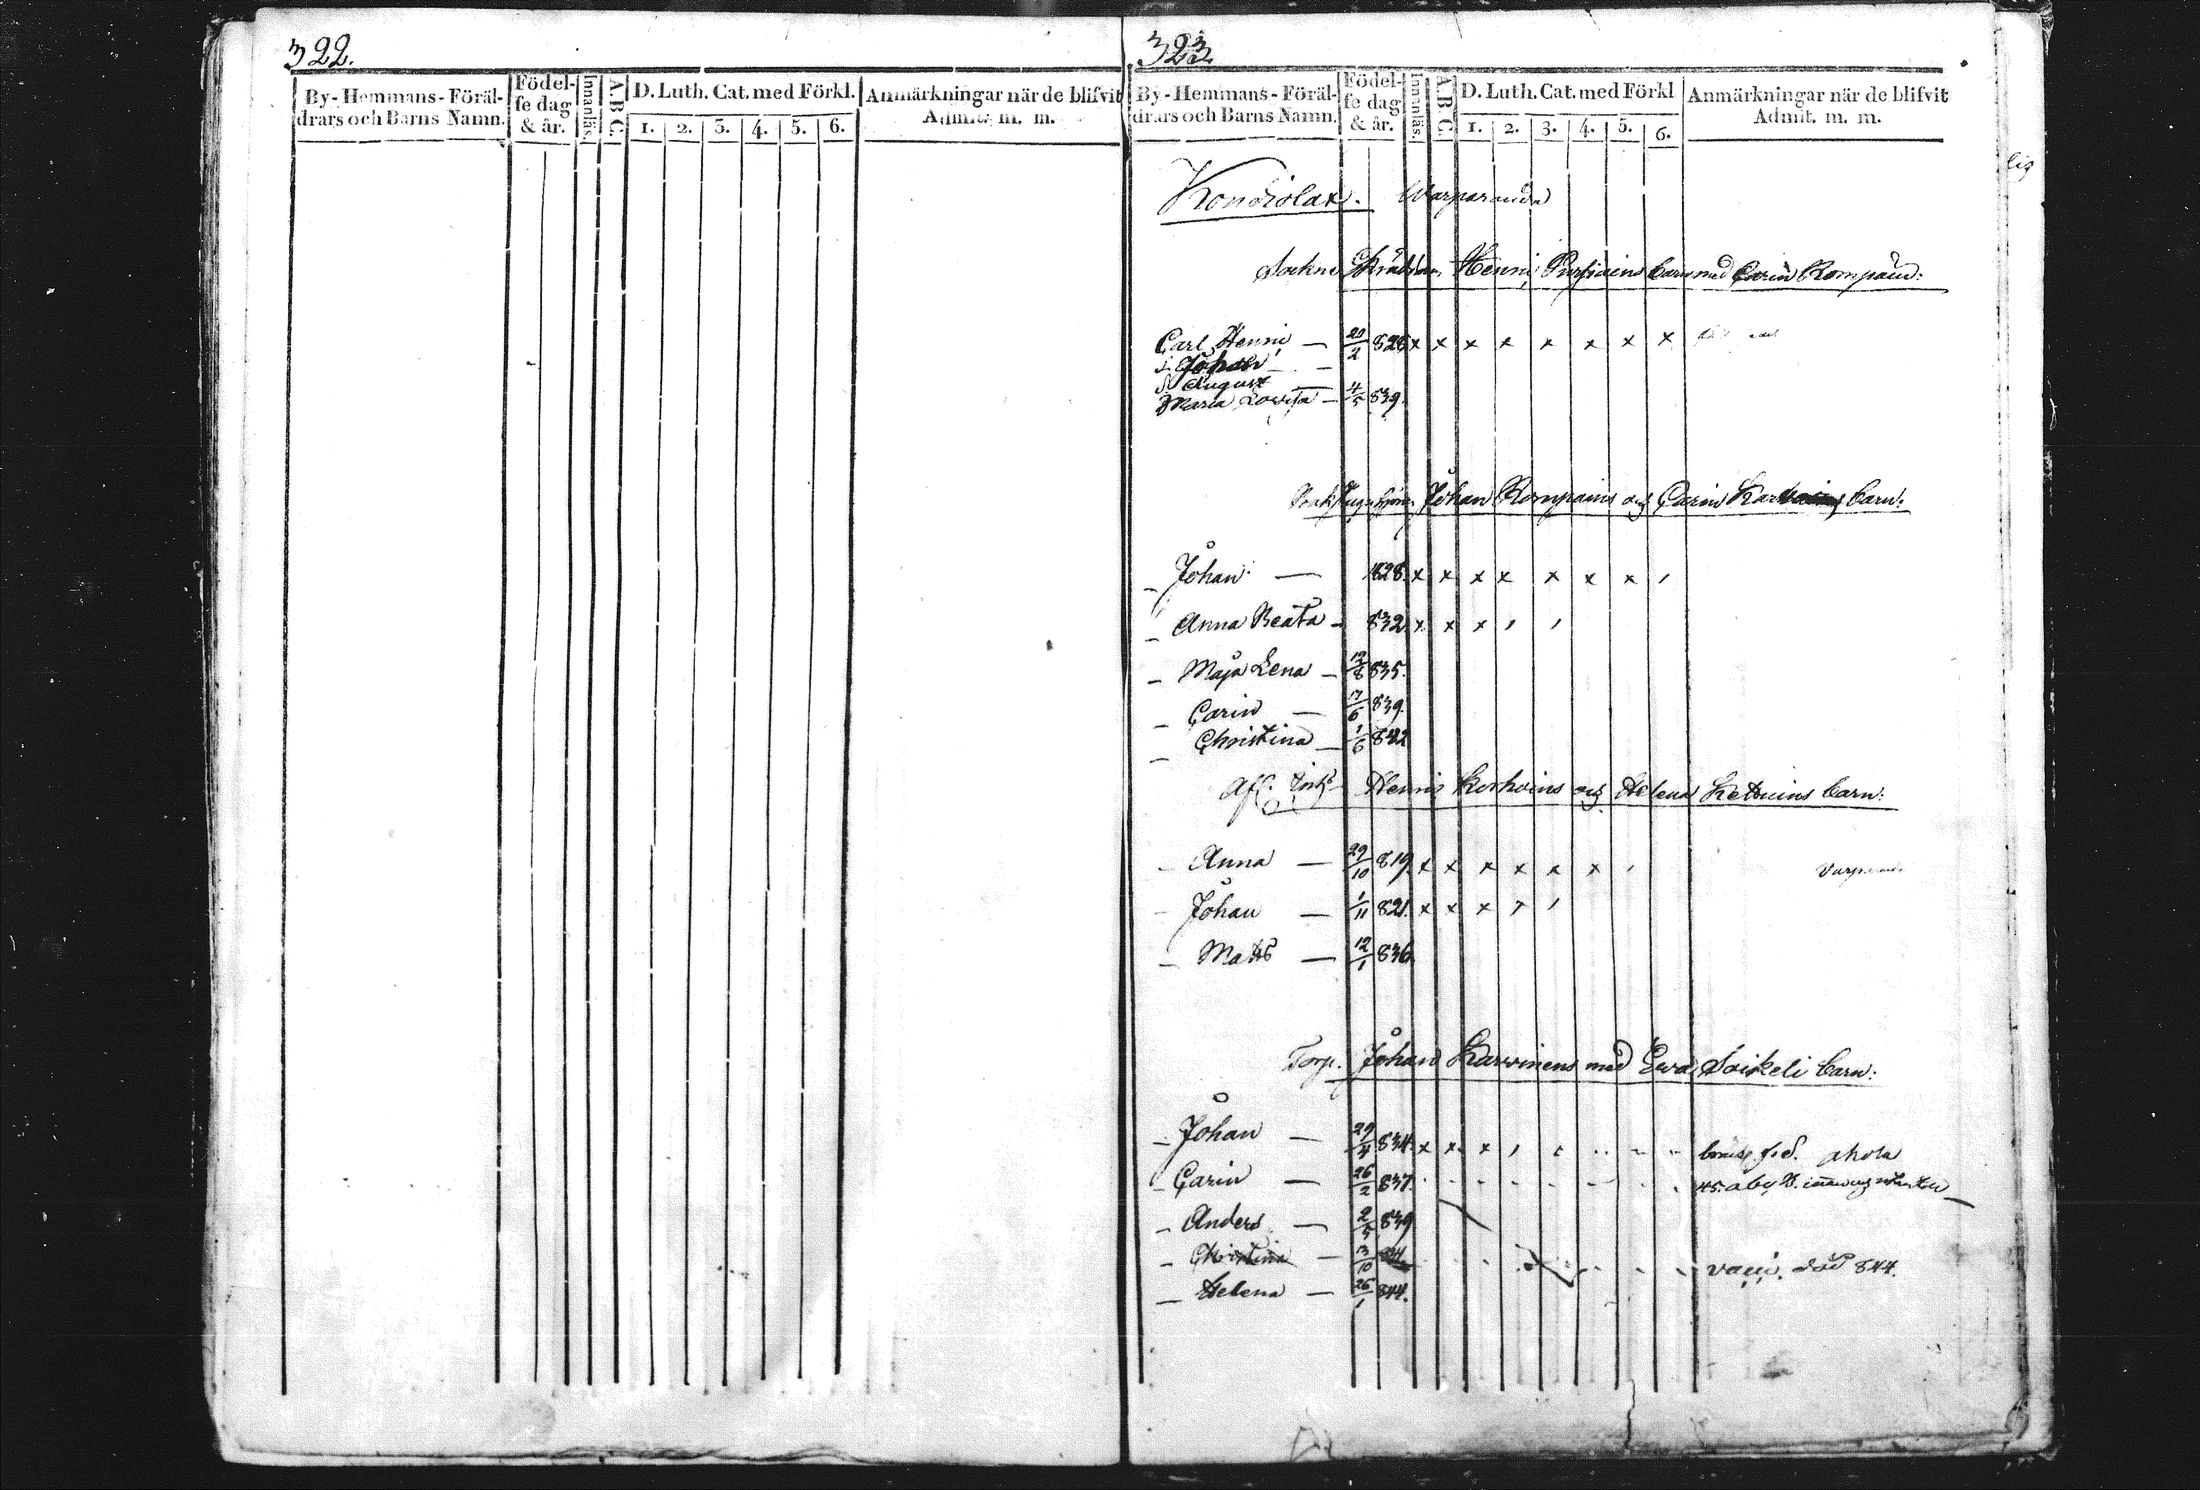 322.
By- Hemmans- Föräl-
drars och Barns Namn.
Födel-
se dag
& år.
Innanläs.
A.B.C.
D. Luth. Cat. med Förkl.
1. 2. 3. 4. 5. 6.
Anmärkningar när de blifvit
Admit. m. m.
323
By- Hemmans- Föräl-
drars och Barns Namn.
Födel-
se dag
& år.
Innanläs.
A.B.C.
D. Luth. Cat. med Förkl
1. 2. 3. 4. 5. 6.
Anmärkningar när de blifvit
Admit. m. m.
Kondislax. Warparanda
Sockne Skräddar Henric Pursiains barn med Carin Rompain:
Carl Henric — 20/2 828 x x x x x x x x
Johan —
August —
Maria Lovisa — 4/5 839.
Johan Rompains och Carin barn:
Johan — 828. x x x x x x x ,
Anna Beata — 832. x x x , ,
Maja Lena — 12/8 835.
Carin — 17/6 839.
Christina — 1/6 842
Afl. Henric Korhoins och Helena Kettuins barn:
Anna — 29/10 819. x x x x x x ,
Johan — 1/11 821. x x x , ,
Matts — 12/1 836.
Torp. Johan Karvinens med Eva Soikeli barn:
Johan — 29/4 834. x x x , ahola
Carin — 26/2 837.
Anders — 2/5 839
Christina — 13/10
död 844.
Helena — 26/1 844.